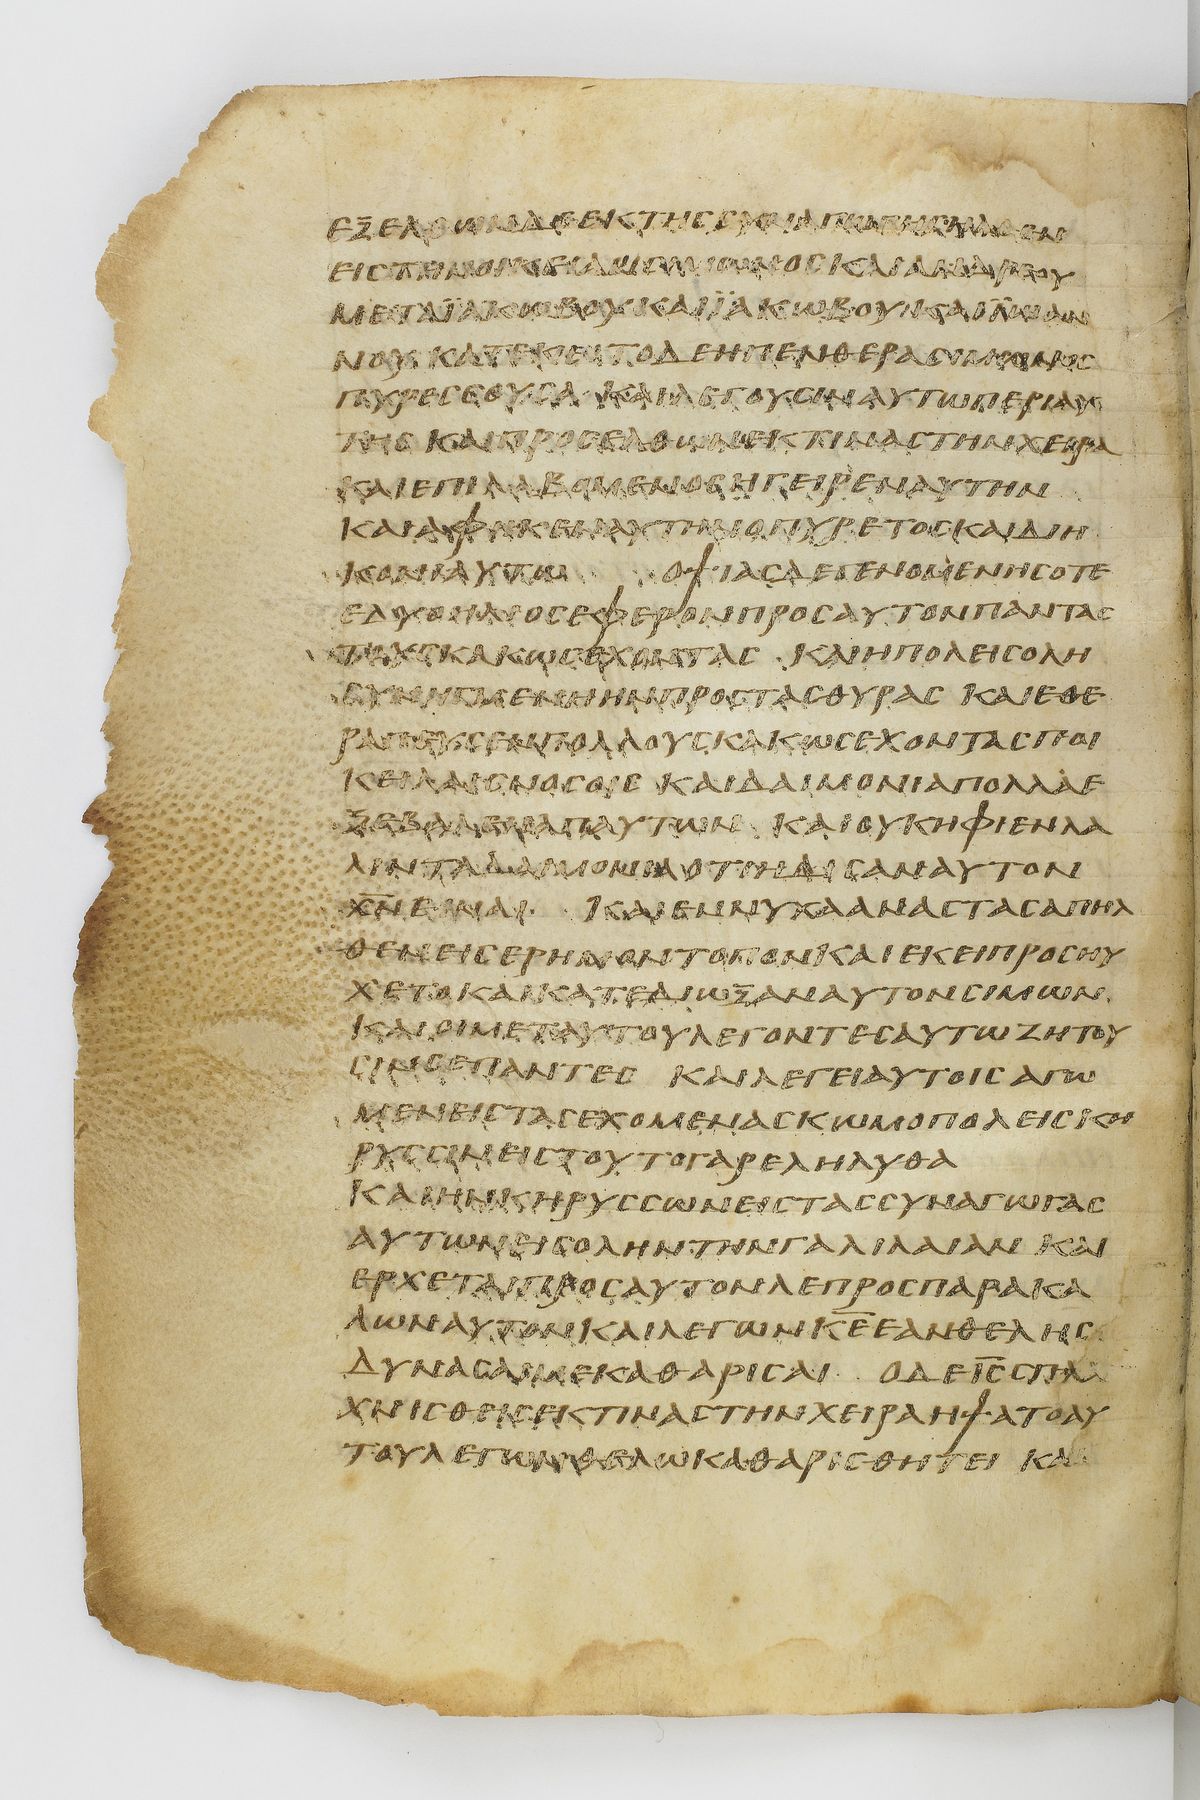 ΕΞΕΛΘΩΝΔΕ ΕΚΤΗΣ ΣΥΝΑΓΩΓΗΣ ΗΛΘΕΝ
ΕΙΣ ΤΗΝ ΟΙΚΕΙΑΝ ΣΙΜΩΝΟΣ ΚΑΙ ΑΝΔΡΕΟΥ
ΜΕΤΑ ΪΑΚΩΒΟΥ ΚΑΙ ΪΩΑΝ
ΝΟΥ ΚΑΤΕΚΕΙΤΟ ΔΕ Η ΠΕΝΘΕΡΑ ΣΙΜΩΝΟΣ
ΠΥΡΕΣΣΟΥΣΑ ΚΑΙ ΛΕΓΟΥΣΙΝ ΑΥΤΩ ΠΕΡΙ ΑΥ
ΤΗΣ ΚΑΙ ΠΡΟΣΕΛΘΩΝ ΕΚΤΙΝΑΣ ΤΗΝ ΧΕΙΡΑ
ΚΑΙ ΕΠΙΛΑΒΟΜΕΝΟΣ ΗΓΕΙΡΕΝ ΑΥΤΗΝ
ΚΑΙ ΑΦΗΚΕΝ ΑΥΤΗΝ Ο ΠΥΡΕΤΟΣ ΚΑΙ ΔΙΗ
ΚΟΝΙ ΑΥΤΩ ΟΨΙΑΣ ΔΕ ΓΕΝΟΜΕΝΗΣ ΟΤΕ
ΕΔΥ Ο ΗΛΙΟΣ ΕΦΕΡΟΝ ΠΡΟΣ ΑΥΤΟΝ ΠΑΝΤΑΣ
ΤΟΥΣ ΚΑΚΩΣ ΕΧΟΝΤΑΣ ΚΑΙ Η ΠΟΛΕΙΣ ΟΛΗ
ΣΥΝΗΓΜΕΝΗ ΗΝ ΠΡΟΣ ΤΑΣ ΘΥΡΑΣ ΚΑΙ ΕΘΕ
ΡΑΠΕΥΣΕΝ ΠΟΛΛΟΥΣ ΚΑΚΩΣ ΕΧΟΝΤΑΣ ΠΟΙ
ΚΕΙΛΑΙΣ ΝΟΣΟΙΣ ΚΑΙ ΔΑΙΜΟΝΙΑ ΠΟΛΛΑ Ε
ΞΕΒΑΛΕΝ ΑΠ ΑΥΤΩΝ ΚΑΙ ΟΥΚ ΗΦΙΕΝ ΛΑ
ΛΙΝ ΤΑ ΔΑΙΜΟΝΙΑ ΟΤΙ ΗΔΙΣΑΝ ΑΥΤΟΝ
Χ̅Ν̅ ΕΙΝΑΙ ΚΑΙ ΕΝΝΥΚΑ ΑΝΑΣΤΑΣ ΑΠΗΛ
ΘΕΝ ΕΙΣ ΕΡΗΜΟΝ ΤΟΠΟΝ ΚΑΙ ΕΚΕΙ ΠΡΟΣΗΥ
ΧΕΤΟ ΚΑΙ ΚΑΤΕΔΙΩΞΑΝ ΑΥΤΟΝ ΣΙΜΩΝ
ΚΑΙ ΟΙ ΜΕΤ ΑΥΤΟΥ ΛΕΓΟΝΤΕΣ ΑΥΤΩ ΖΗΤΟΥ
ΣΙΝ ΣΕ ΠΑΝΤΕΣ ΚΑΙ ΛΕΓΕΙ ΑΥΤΟΙΣ ΑΓΩ
ΜΕΝ ΕΙΣ ΤΑΣ ΕΧΟΜΕΝΑΣ ΚΩΜΟΠΟΛΕΙΣ ΚΗ
ΡΥΣΣΙΝ ΕΙΣ ΤΟΥΤΟ ΓΑΡ ΕΛΗΛΥΘΑ
ΚΑΙ ΗΝ ΚΗΡΥΣΣΩΝ ΕΙΣ ΤΑΣ ΣΥΝΑΓΩΓΑΣ
ΑΥΤΩΝ ΕΙΣ ΟΛΗΝ ΤΗΝ ΓΑΛΙΛΑΙΑΝ ΚΑΙ
ΕΡΧΕΤΑΙ ΠΡΟΣ ΑΥΤΟΝ ΛΕΠΡΟΣ ΠΑΡΑΚΑ
ΛΩΝ ΑΥΤΟΝ ΚΑΙ ΛΕΓΩΝ Κ̅Ε̅ ΕΑΝ ΘΕΛΗΣ
ΔΥΝΑΣΑΙ ΜΕ ΚΑΘΑΡΙΣΑΙ Ο ΔΕ Ι̅Σ̅ ΣΠΛΑ
ΧΝΙΣΘΕΙΣ ΕΚΤΙΝΑΣ ΤΗΝ ΧΕΙΡΑ ΗΨΑΤΟ ΑΥ
ΤΟΥ ΛΕΓΩΝ ΘΕΛΩ ΚΑΘΑΡΙΣΘΗΤΕΙ ΚΑΙ